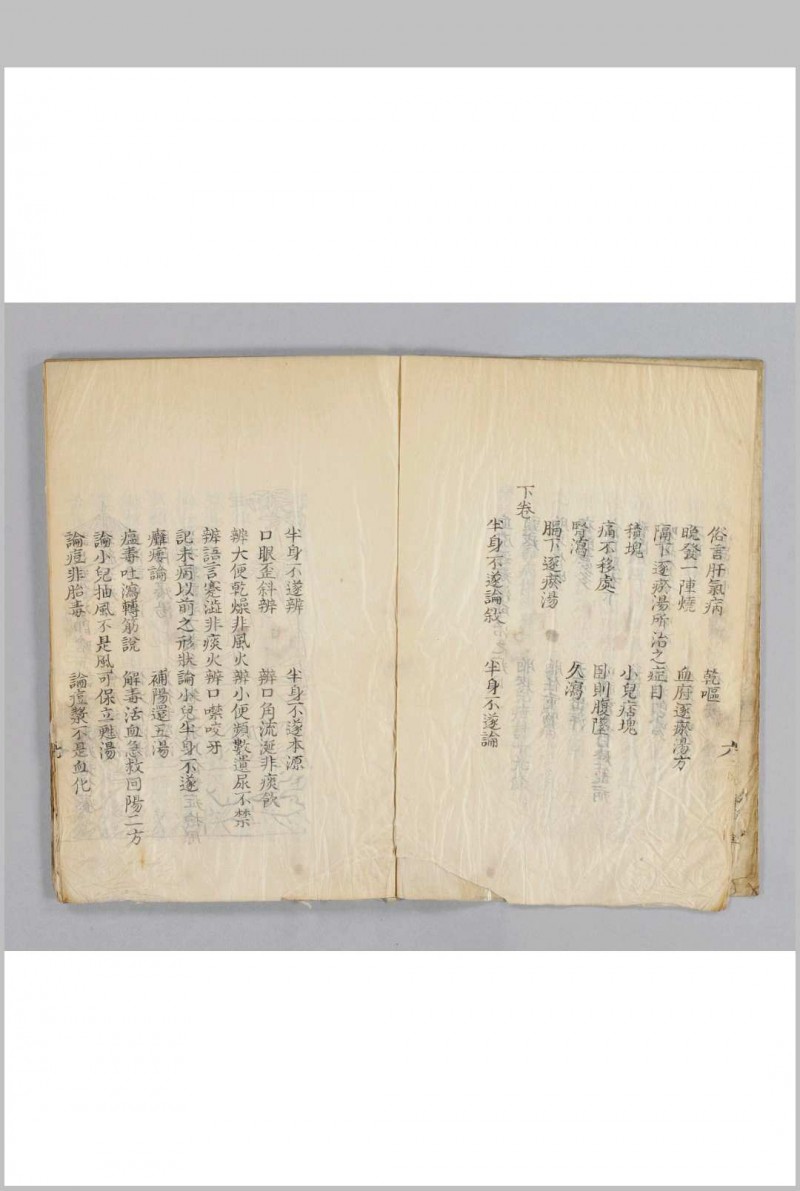 俗言肝氣病　乾嘔
晚發一陣燒　血府逐瘀湯方
隔下逐瘀湯所治之症目
積塊　小兒痞塊
痛不移處　卧則腹墜
腎瀉　久瀉
膈下逐瘀湯
下卷
半身不遂論敘　半身不遂論
半身不遂辨　半身不遂本源
口眼歪斜辨　辨口角流涎非痰飲
辨大便乾燥非風火　辨小便頻數遺尿不禁
辨語言蹇澁非痰火　辨口噤咬牙
記未病以前之形狀　論小兒半身不遂
癱痿論　補陽還五湯
瘟毒吐瀉轉筋說　解毒活血急救回陽二方
論小兒抽風不是風　可保立甦湯
論痘非胎毒　論痘漿不是血化